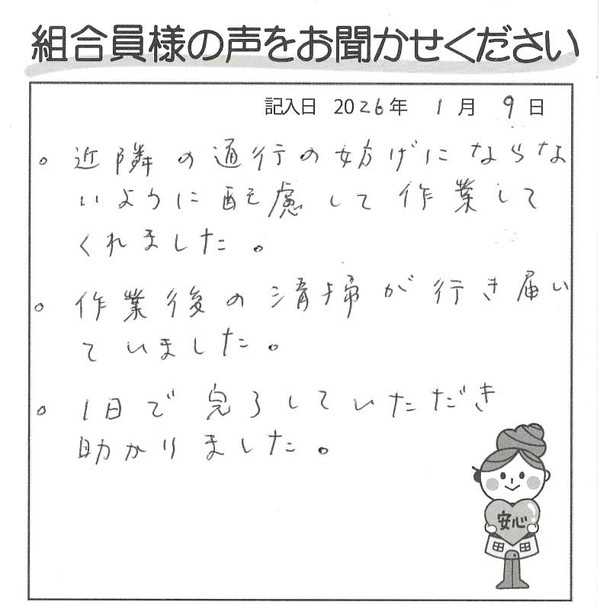 組合員様の声をお聞かせください
記入日 2026年 1月 9日
。近隣の通行の妨げにならな
いように配慮して作業して
くれました。
。作業後の清掃が行き届い
ていました。
。1日で完了していただき
助かりました。
安心